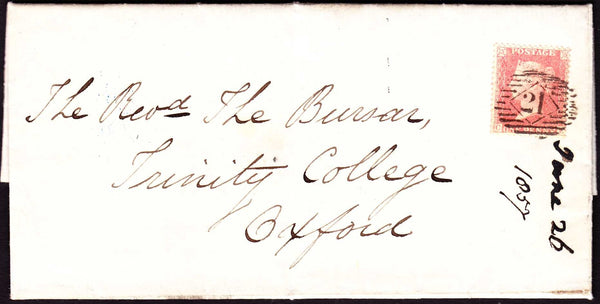 The Revd The Bursar,
Trinity College
Oxford
POSTAGE
21
June 26
1857